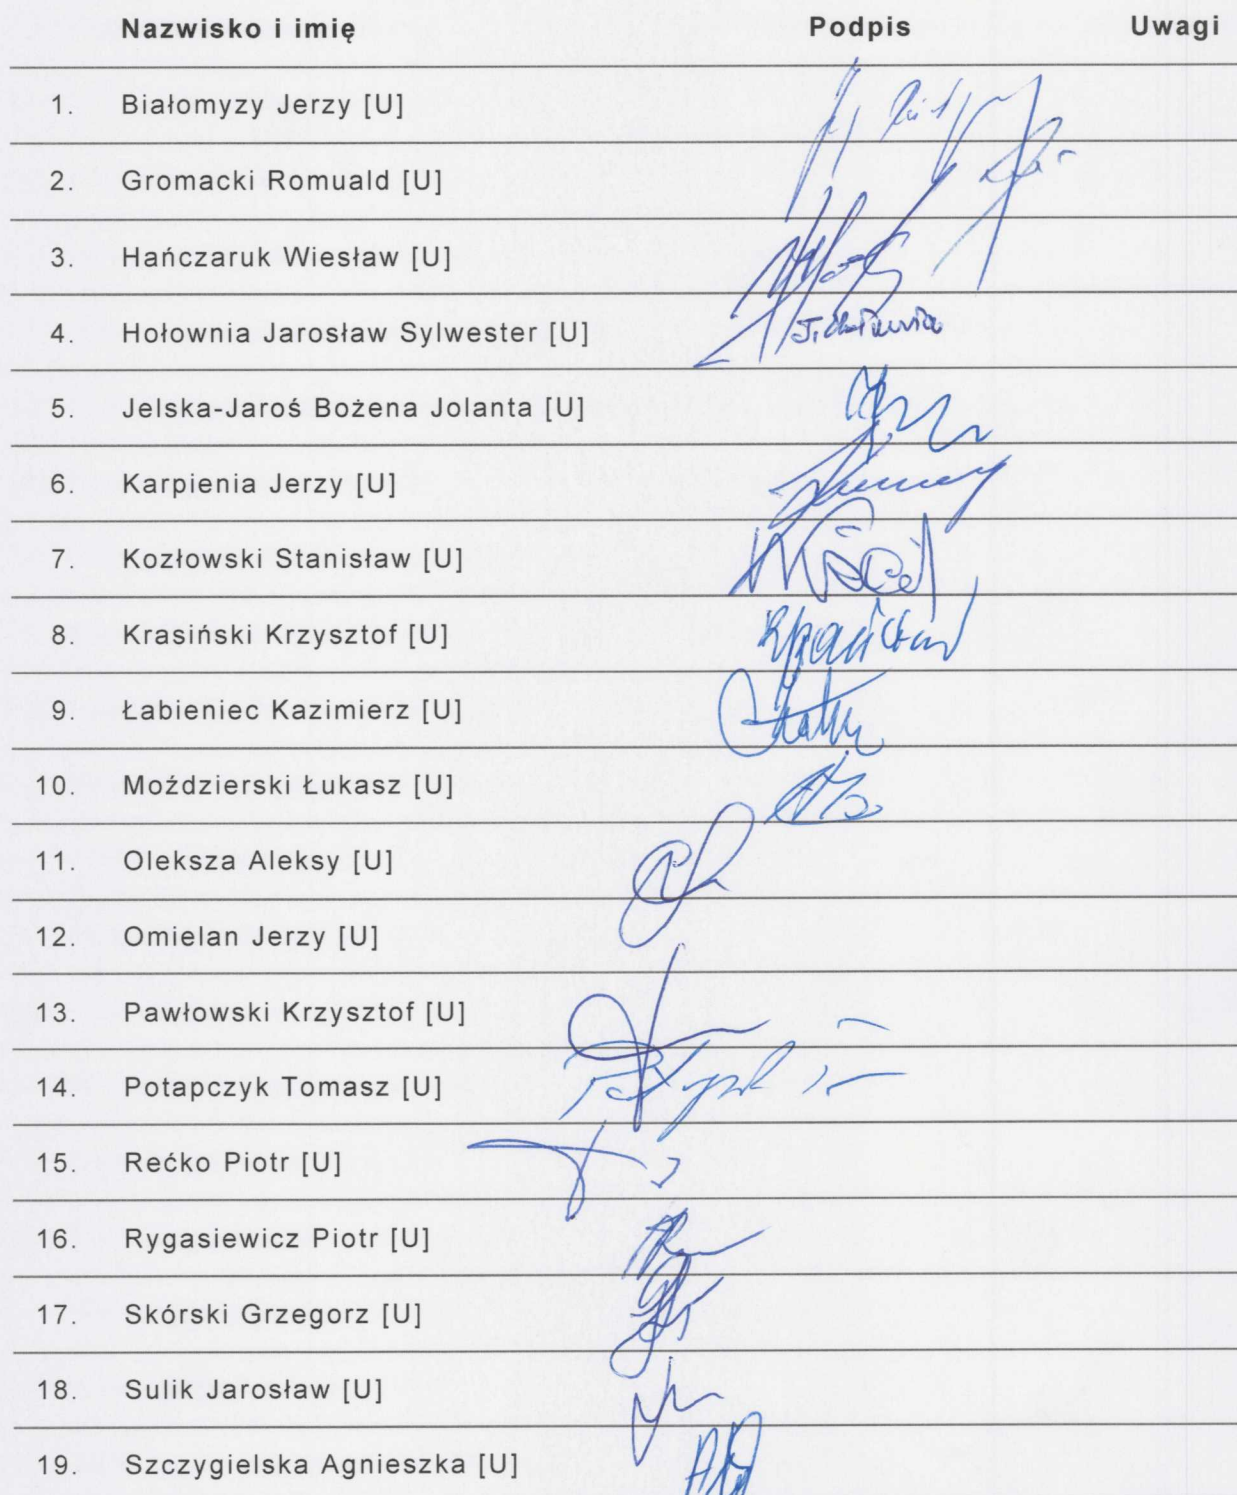 Nazwisko i imię Podpis Uwagi
1. Białomyzy Jerzy [U]
2. Gromacki Romuald [U]
3. Hańczaruk Wiesław [U]
4. Hołownia Jarosław Sylwester [U]
5. Jelska-Jaroś Bożena Jolanta [U]
6. Karpienia Jerzy [U]
7. Kozłowski Stanisław [U]
8. Krasiński Krzysztof [U]
9. Łabieniec Kazimierz [U]
10. Moździerski Łukasz [U]
11. Oleksza Aleksy [U]
12. Omielan Jerzy [U]
13. Pawłowski Krzysztof [U]
14. Potapczyk Tomasz [U]
15. Rećko Piotr [U]
16. Rygasiewicz Piotr [U]
17. Skórski Grzegorz [U]
18. Sulik Jarosław [U]
19. Szczygielska Agnieszka [U]